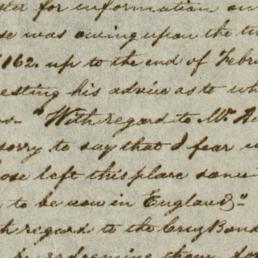 for information on
se was owing upon the
162. up to the end of Febru
esting his advice as to wh
"With regard to Mr. A
sorry to say that I fear
ose left this place some
to be now in England"
h regard to the City Bond